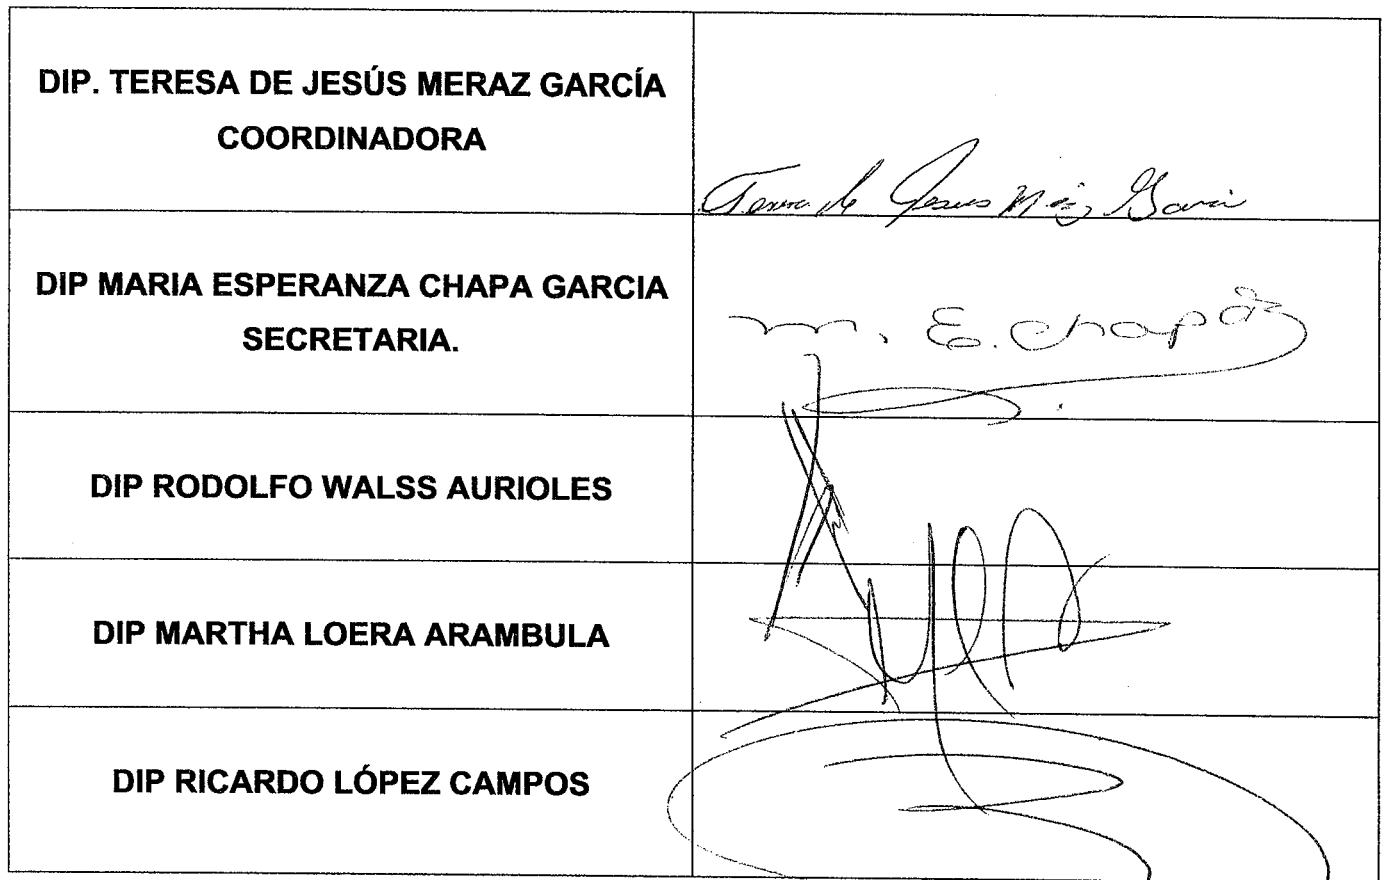 DIP. TERESA DE JESÚS MERAZ GARCÍA
COORDINADORA
Teresa de Jesus Garcia
DIP MARIA ESPERANZA CHAPA GARCIA
SECRETARIA.
M. E. Chapa
DIP RODOLFO WALSS AURIOLES
DIP MARTHA LOERA ARAMBULA
DIP RICARDO LÓPEZ CAMPOS